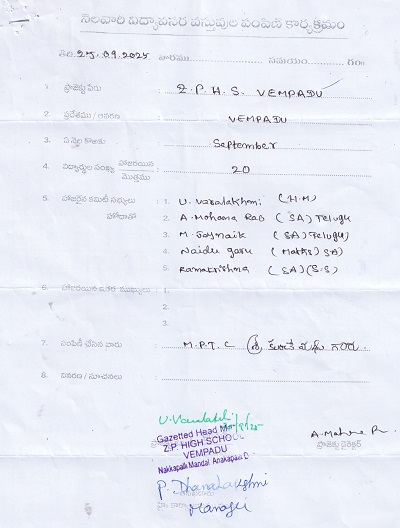 నెలవారి విద్యావసర వస్తువుల పంపిణి కార్యక్రమం
తేది 25.09.2025 వారము సమయం గం॥
1. ప్రాజెక్టు పేరు Z.P.H.S. VEMPADU
2. ప్రదేశము / ఆవరణ VEMPADU
3. ఏ నెల కొరకు September
4. విద్యార్థుల సంఖ్య హాజరయిన మొత్తము 20
5. హాజరైన కమిటీ సభ్యులు హోదాతో
1. U. Varalakhmi (H.M)
2. A. Mohana Rao (SA) Telugu
3. M. Jaynaik (SA) Telugu)
4. Naidu garu (Maths) SA)
5. Ramakrishna (SA)(S.S)
6. హాజరయిన ఇతర ముఖ్యులు 1.
2.
3.
7. పంపిణీ చేసిన వారు M.P.T.C శ్రీ గారు.
8. వివరణ / సూచనలు
U. Varalakhmi
Gazetted Head
Z.P. HIGH SCHOOL
VEMPADU
Nakkapalli Mandal Anakapalli D
A. Mohana R
ప్రాజెక్టు డైరెక్టర్
P. Dhanalaxhmi
Manager